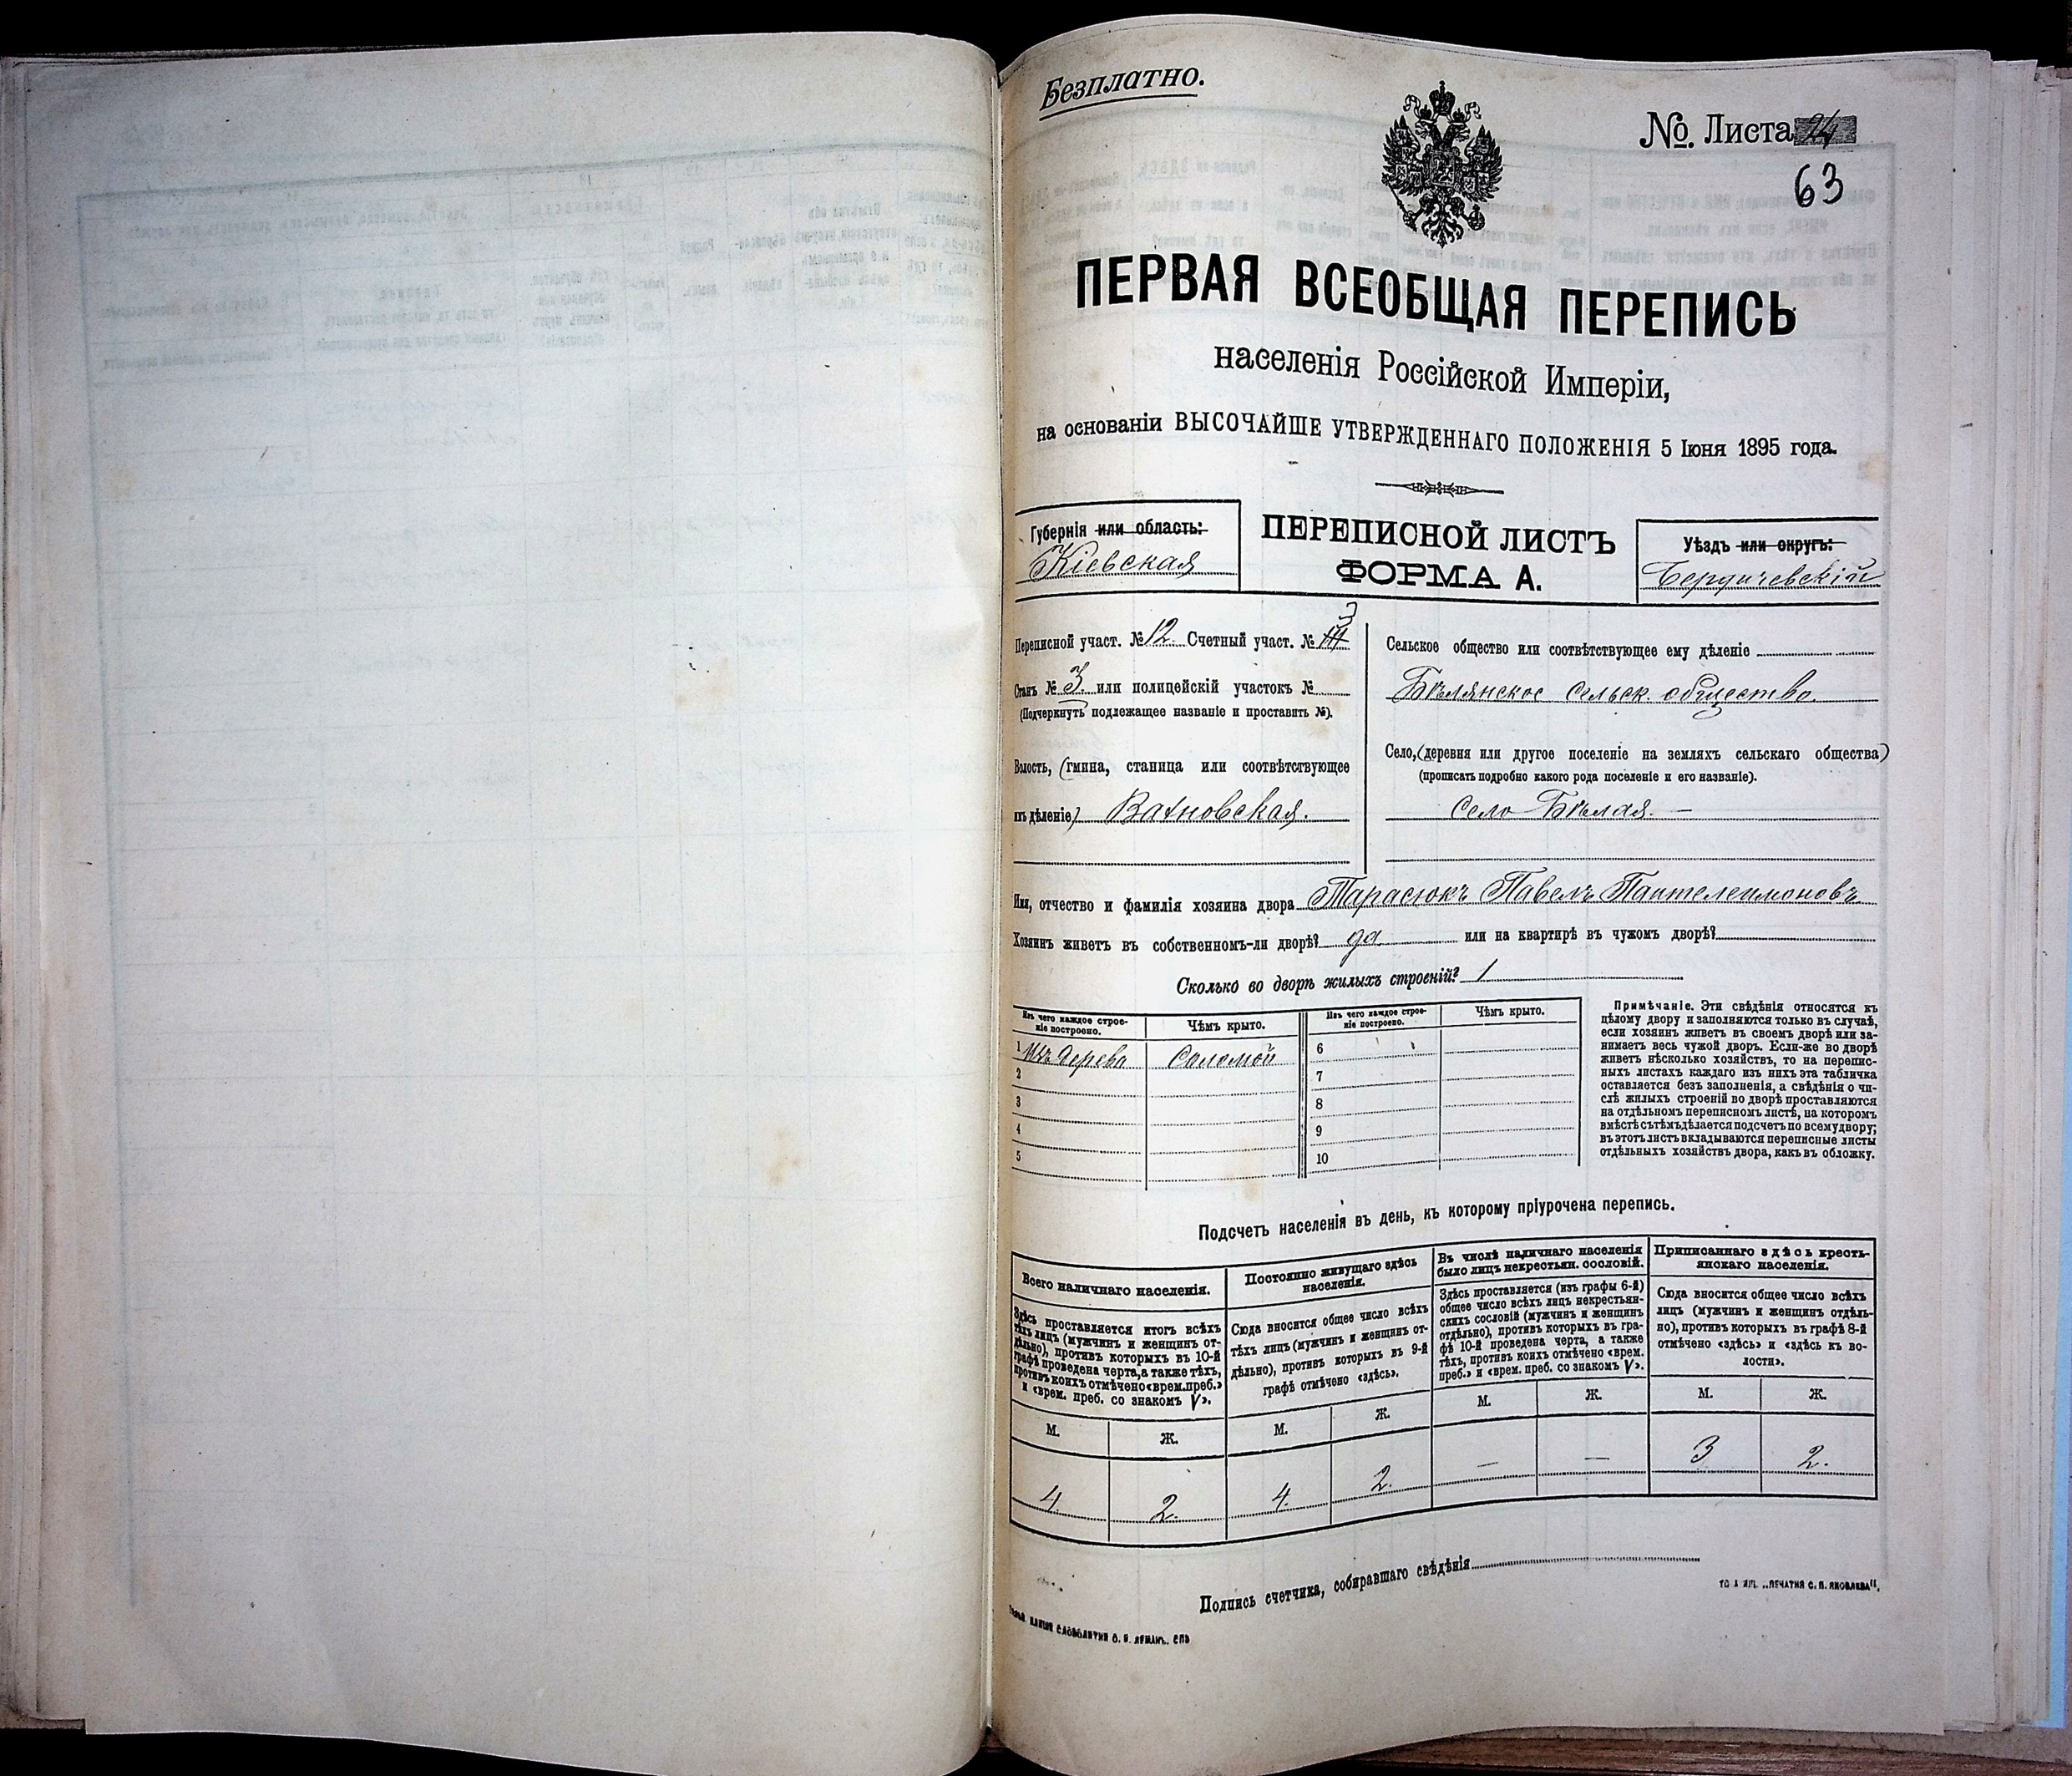 Безплатно.
№. Листа 24
63
ПЕРВАЯ ВСЕОБЩАЯ ПЕРЕПИСЬ
населенія Россійской Имперіи,
на основаніи ВЫСОЧАЙШЕ УТВЕРЖДЕННАГО ПОЛОЖЕНІЯ 5 Іюня 1895 года.
Губернія или область:
Кіевская
ПЕРЕПИСНОЙ ЛИСТЪ
ФОРМА А.
Уѣздъ или округъ:
Бердичевскій
Переписной участ. № 12. Счетный участ. № 3
Станъ № 3. или полицейскій участокъ №
(Подчеркнуть подлежащее названіе и проставить №).
Волость, (гмина, станица или соотвѣтствующее
имъ дѣленіе) Вахновская.
Сельское общество или соотвѣтствующее ему дѣленіе
Бѣлянское сельск. общество
Село, (деревня или другое поселеніе на земляхъ сельскаго общества)
(прописать подробно какого рода поселеніе и его названіе).
село Бѣлая. —
Имя, отчество и фамилія хозяина двора Тарасюкъ Павелъ Пантелеимоновъ
Хозяинъ живетъ въ собственномъ-ли дворѣ? да или на квартирѣ въ чужомъ дворѣ?
Сколько во дворѣ жилыхъ строеній? 1
Изъ чего каждое строе-
ніе построено.
Чѣмъ крыто.
Изъ чего каждое строе-
ніе построено.
Чѣмъ крыто.
1 Изъ дерева Соломой 6
2 7
3 8
4 9
5 10
Примѣчаніе. Эти свѣдѣнія относятся къ
цѣлому двору и заполняются только въ случаѣ,
если хозяинъ живетъ въ своемъ дворѣ или за-
нимаетъ весь чужой дворъ. Если-же во дворѣ
живетъ нѣсколько хозяйствъ, то на перепис-
ныхъ листахъ каждаго изъ нихъ эта табличка
оставляется безъ заполненія, а свѣдѣнія о чи-
слѣ жилыхъ строеній во дворѣ проставляются
на отдѣльномъ переписномъ листѣ, на которомъ
вмѣстѣ съ тѣмъ дѣлается подсчетъ по всему двору;
въ этотъ листъ вкладываются переписные листы
отдѣльныхъ хозяйствъ двора, какъ въ обложку.
Подсчетъ населенія въ день, къ которому пріурочена перепись.
Всего наличнаго населенія.
Здѣсь проставляется итогъ всѣхъ
тѣхъ лицъ (мужчинъ и женщинъ от-
дѣльно), противъ которыхъ въ 10-й
графѣ проведена черта, а также тѣхъ,
противъ коихъ отмѣчено «врем. преб.»
и «врем. преб. со знакомъ V».
М. Ж.
4 2.
Постоянно живущаго здѣсь
населенія.
Сюда вносится общее число всѣхъ
тѣхъ лицъ (мужчинъ и женщинъ от-
дѣльно), противъ которыхъ въ 9-й
графѣ отмѣчено «здѣсь».
М. Ж.
4. 2.
Въ числѣ наличнаго населенія
было лицъ некрестьян. сословій.
Здѣсь проставляется (изъ графы 6-й)
общее число всѣхъ лицъ некрестьян-
скихъ сословій (мужчинъ и женщинъ
отдѣльно), противъ которыхъ въ гра-
фѣ 10-й проведена черта, а также
тѣхъ, противъ коихъ отмѣчено «врем.
преб.» и «врем. преб. со знакомъ V».
М. Ж.
— —
Приписаннаго здѣсь кресть-
янскаго населенія.
Сюда вносится общее число всѣхъ
лицъ (мужчинъ и женщинъ отдѣль-
но), противъ которыхъ въ графѣ 8-й
отмѣчено «здѣсь» и «здѣсь къ во-
лости».
М. Ж.
3 2.
Подпись счетчика, собиравшаго свѣдѣнія
„ПЕЧАТНЯ С. П. ЯКОВЛЕВА".
СЛОВОЛИТНИ СПБ